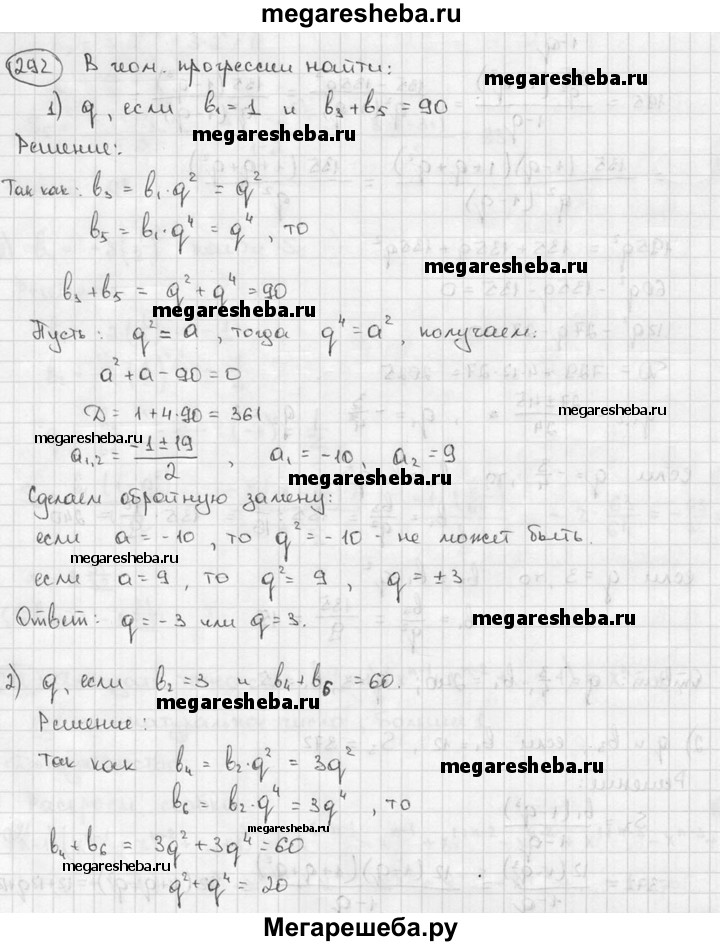 megaresheba.ru
292 В геом. прогрессии найти:
megaresheba.ru
1) q, если b₁ = 1 и b₃ + b₅ = 90
megaresheba.ru
Решение:
Так как: b₃ = b₁·q² = q²
b₅ = b₁·q⁴ = q⁴, то
megaresheba.ru
b₃ + b₅ = q² + q⁴ = 90
megaresheba.ru
Пусть: q² = a, тогда q⁴ = a², получаем:
a² + a - 90 = 0
D = 1 + 4·90 = 361
megaresheba.ru
megaresheba.ru
a₁,₂ = (-1 ± 19)/2, a₁ = -10, a₂ = 9
megaresheba.ru
Сделаем обратную замену:
если a = -10, то q² = -10 - не может быть.
megaresheba.ru
если a = 9, то q² = 9, q = ±3
Ответ: q = -3 или q = 3.
megaresheba.ru
2) q, если b₂ = 3 и b₄ + b₆ = 60.
megaresheba.ru
Решение:
Так как b₄ = b₂·q² = 3q²
megaresheba.ru
b₆ = b₂·q⁴ = 3q⁴, то
megaresheba.ru
b₄ + b₆ = 3q² + 3q⁴ = 60
megaresheba.ru
q² + q⁴ = 20
Мегарешеба.ру